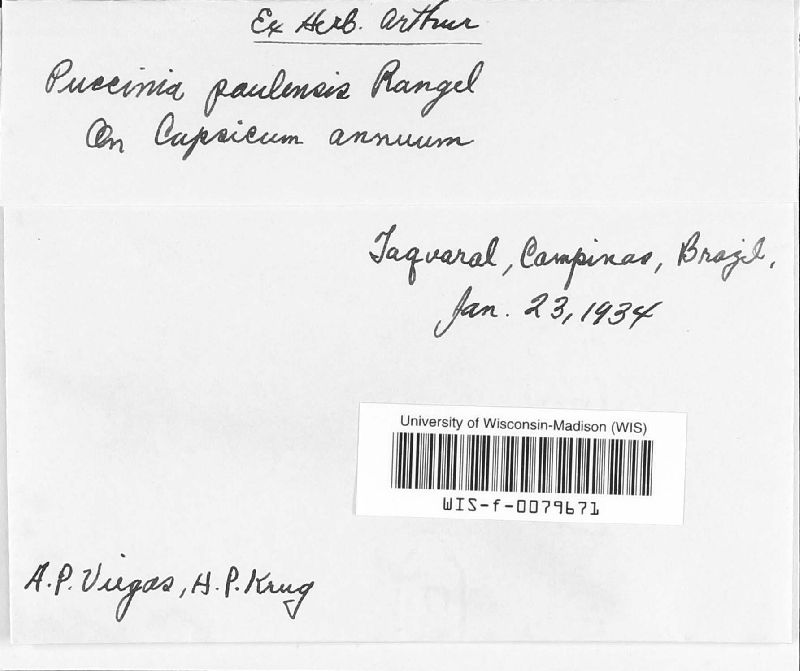 Ex Herb. Arthur
Puccinia paulensis Rangel
On Capsicum annuum
Taquaral, Campinas, Brazil,
Jan. 23, 1934
University of Wisconsin-Madison (WIS)
WIS-f-0079671
A. P. Viegas, H. P. Krug